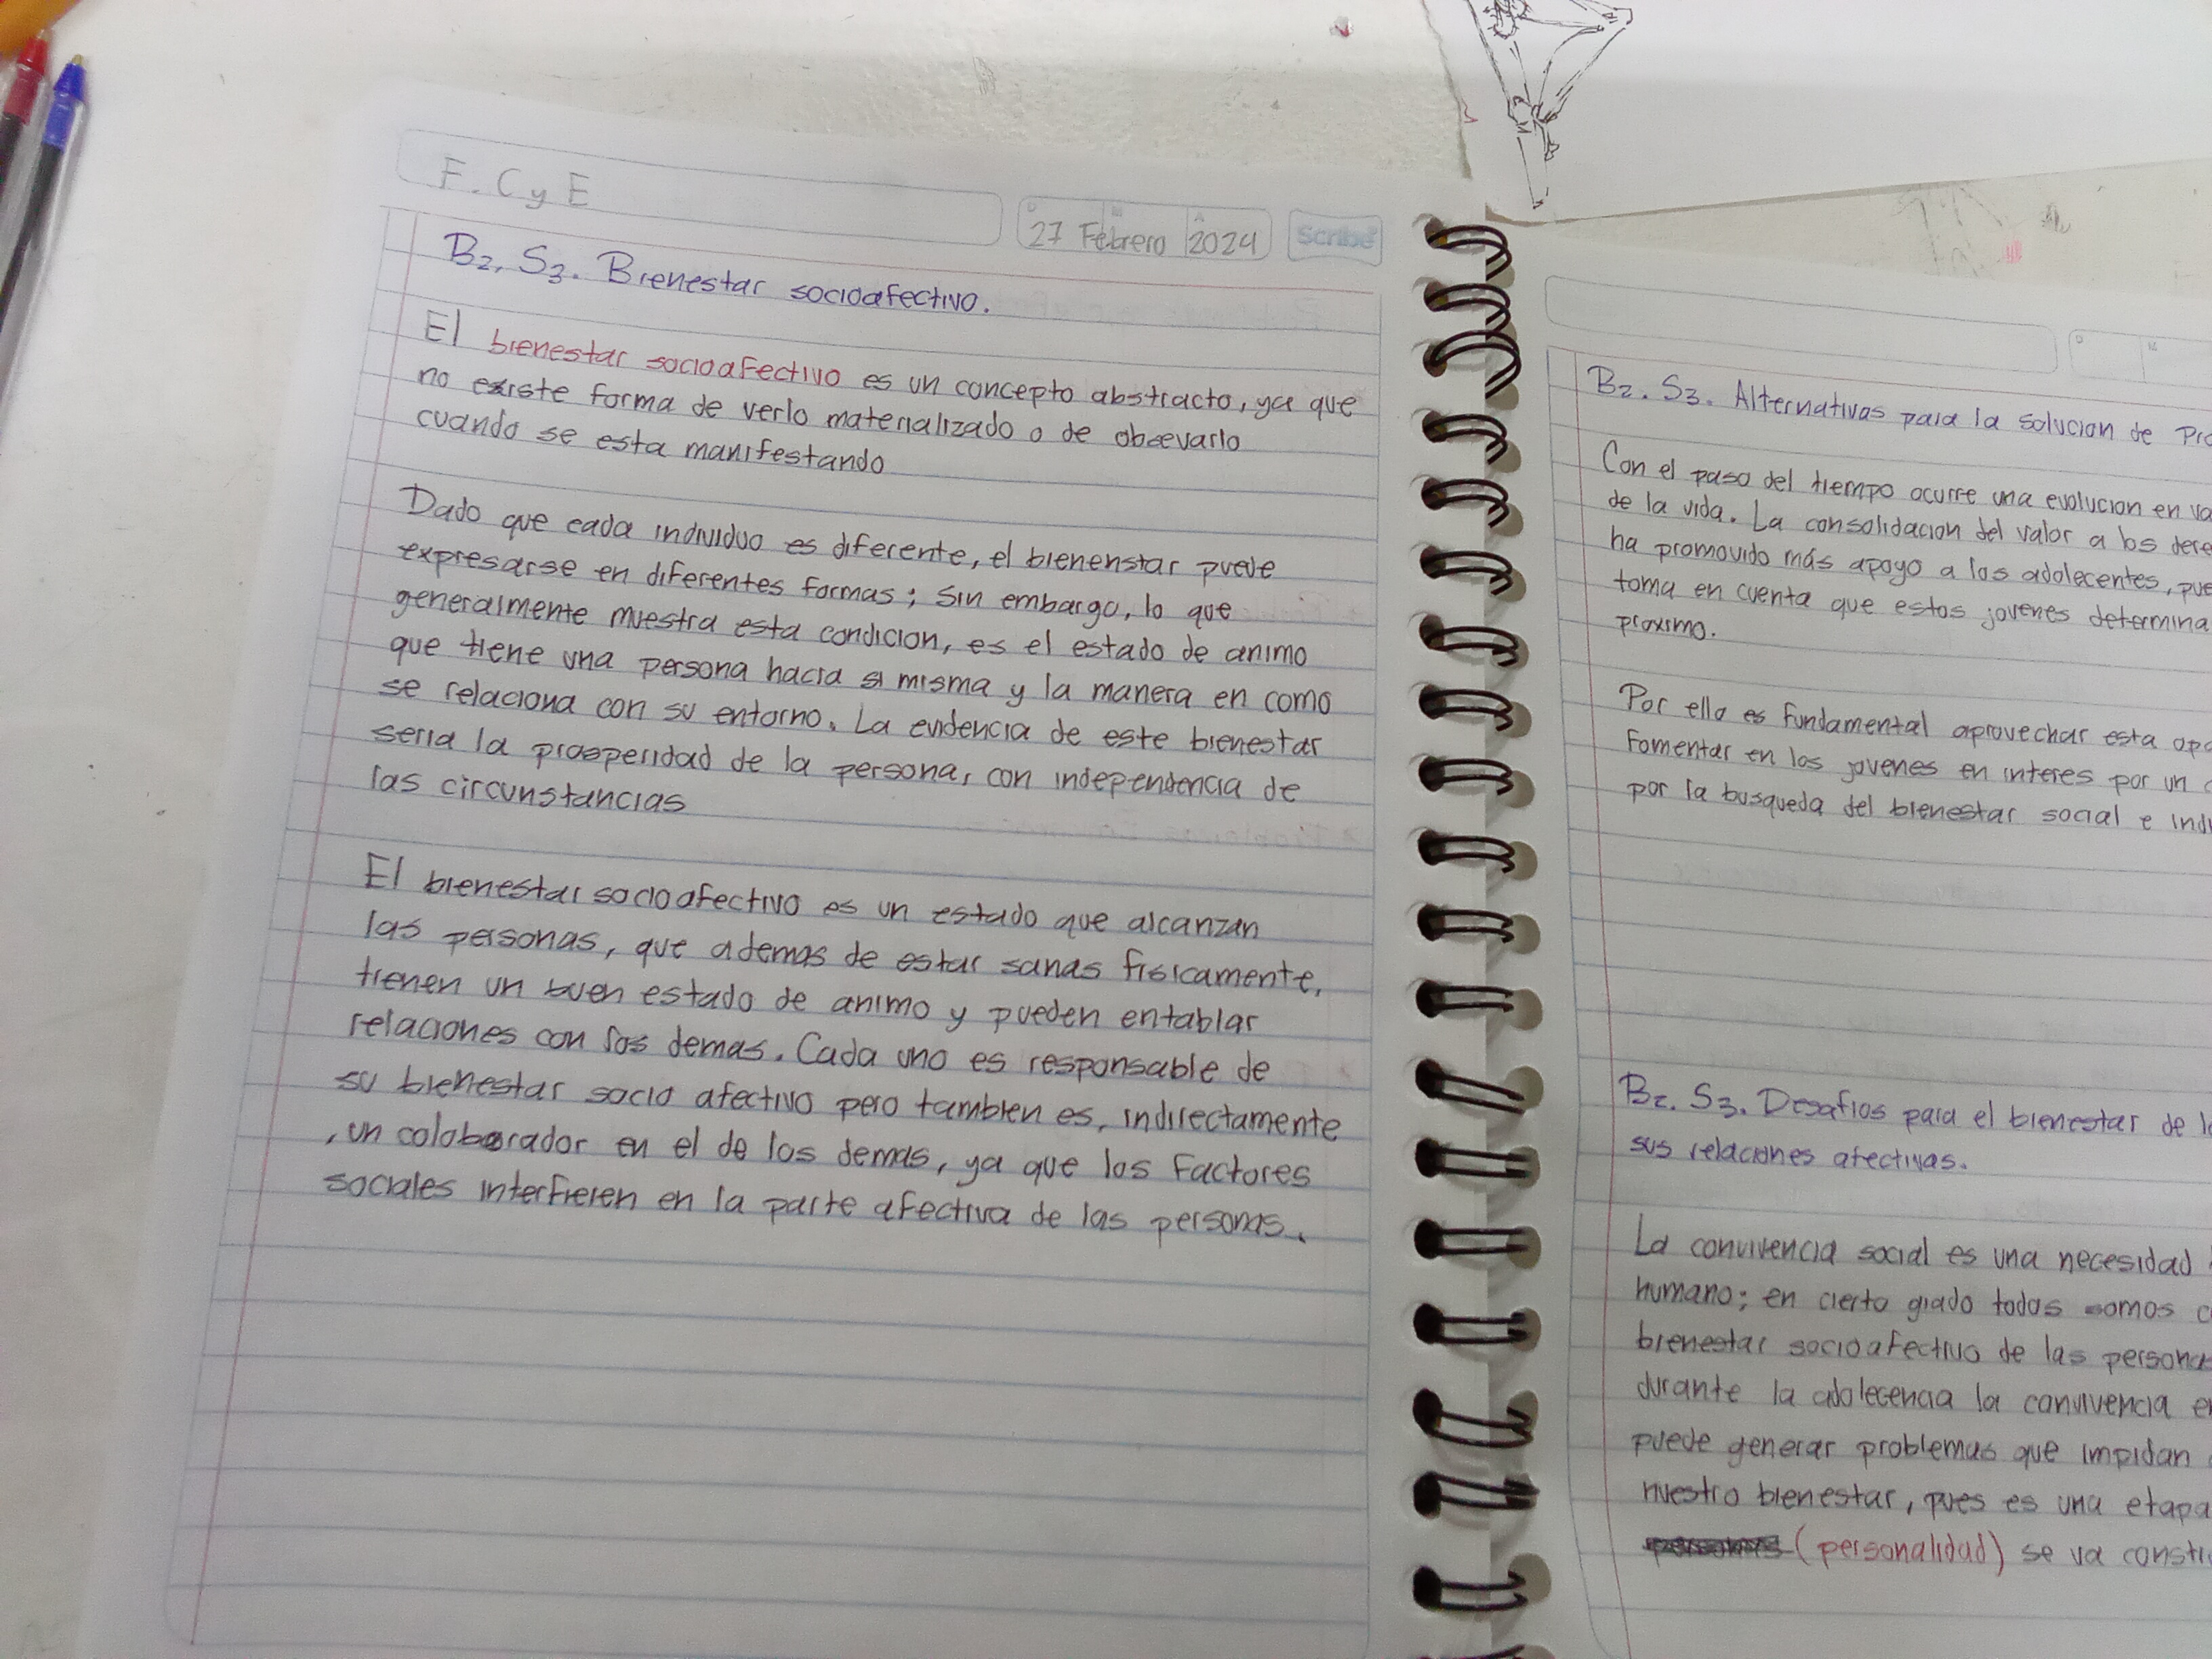 F. C y E
27 Febrero 2024
Scribe
B2. S3. Bienestar socioafectivo.
El bienestar socioafectivo es un concepto abstracto, ya que
no existe forma de verlo materializado o de obsevarlo
cuando se esta manifestando
Dado que cada individuo es diferente, el bienenstar puede
expresarse en diferentes formas; sin embargo, lo que
generalmente muestra esta condicion, es el estado de animo
que tiene una persona hacia si misma y la manera en como
se relaciona con su entorno. La evidencia de este bienestar
seria la prosperidad de la persona, con independencia de
las circunstancias
El bienestar socioafectivo es un estado que alcanzan
las personas, que ademas de estar sanas fisicamente,
tienen un buen estado de animo y pueden entablar
relaciones con los demas. Cada uno es responsable de
su bienestar socio afectivo pero tambien es, indirectamente
, un colaborador en el de los demas, ya que los factores
sociales interfieren en la parte afectiva de las personas.
B2. S3. Alternativas para la solucion de
Con el paso del tiempo ocurre una evolucion en
de la vida. La consolidacion del valor a los
ha promovido más apoyo a los adolecentes,
toma en cuenta que estos jovenes determina
proximo.
Por ello es fundamental aprovechar esta
fomentar en los jovenes en interes por un
por la busqueda del bienestar social e
B2. S3. Desafios para el bienestar de
sus relaciones afectivas.
La convivencia social es una necesidad
humano; en cierto grado todos somos
bienestar socioafectivo de las persona
durante la adolecencia la convivencia
puede generar problemas que impidan
nuestro bienestar, pues es una etapa
(personalidad) se va